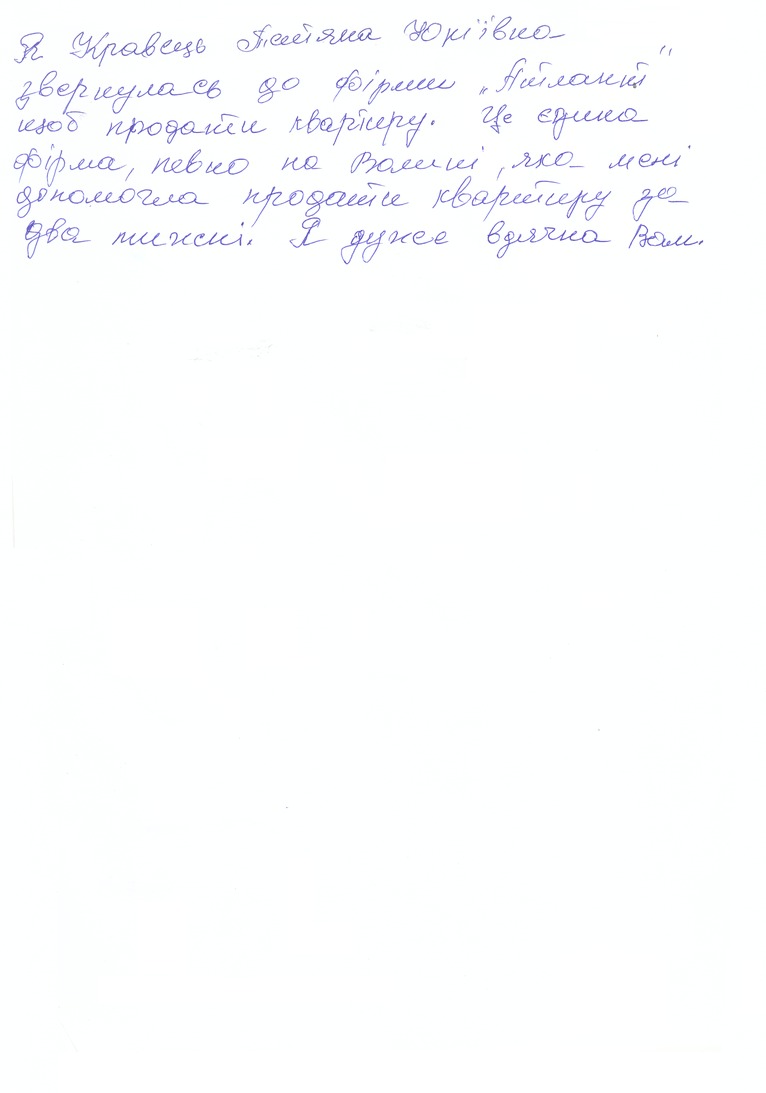 Я Кравець Тетяна Юріївна
звернулась до фірми „Атлант"
щоб продати квартиру. Це єдина
фірма, певно на Волині, яка мені
допомогла продати квартиру за
два тижні. Я дуже вдячна Вам.